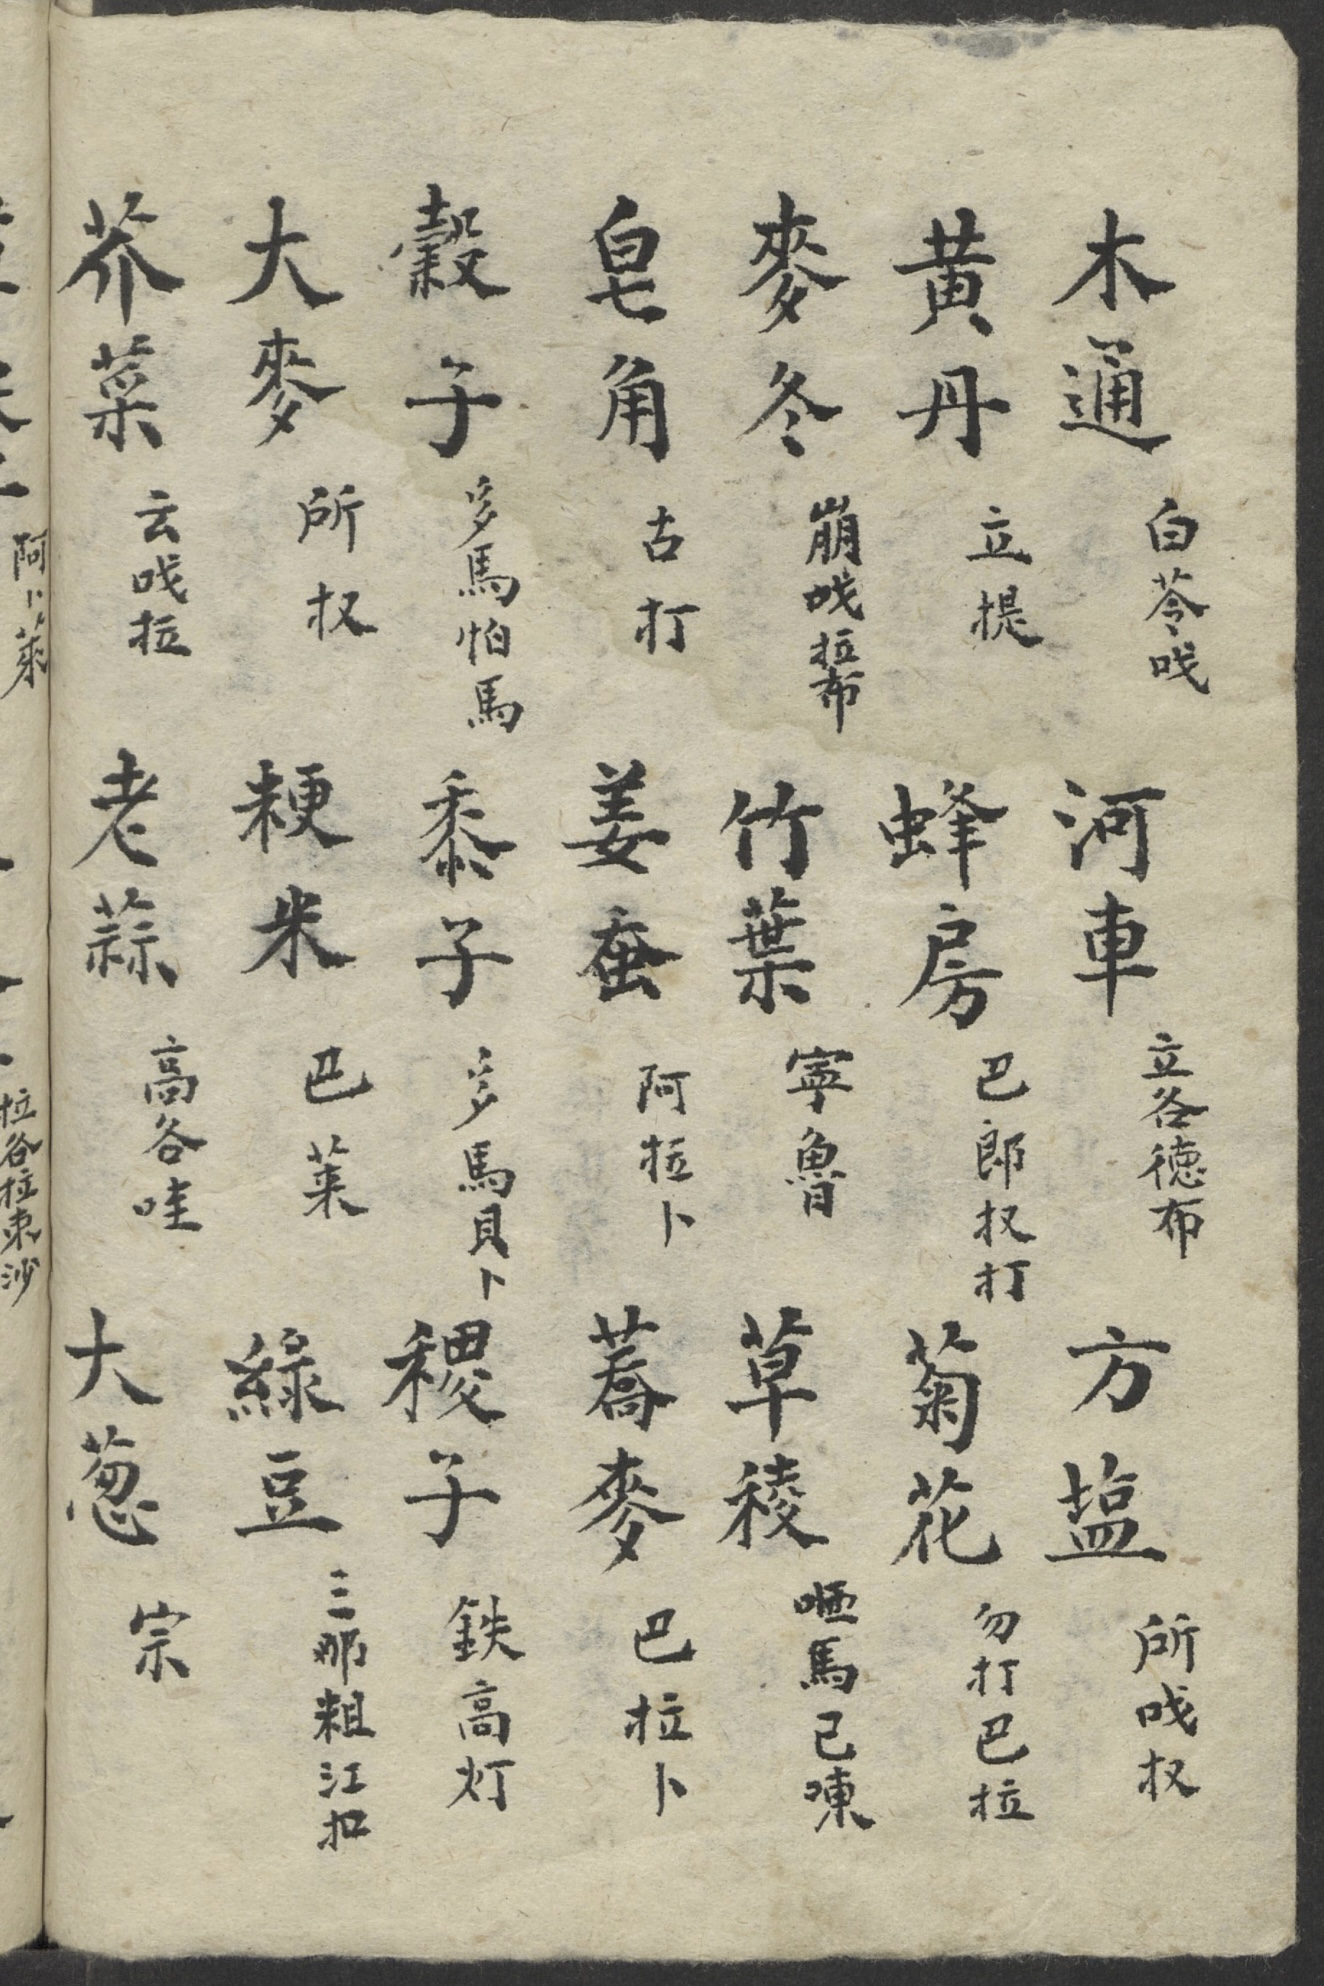 木通 白苓哦 河車 立各德布 方塩 所哦杈
黄丹 立提 蜂房 巴郎杈打 菊花 勿打巴拉
麥冬 崩哦拉布 竹葉 寧魯 草稜 哂馬已㖦
皂角 古打 姜蚕 阿拉卜 蕎麥 巴拉卜
穀子 多馬怕馬 黍子 多馬貝卜 稷子 鉄高灯
大麥 所杈 粳米 巴菜 綠豆 三那粗江扣
芥菜 云哦拉 老蒜 高各哇 大葱 宗
阿卜菜 拉谷拉東沙